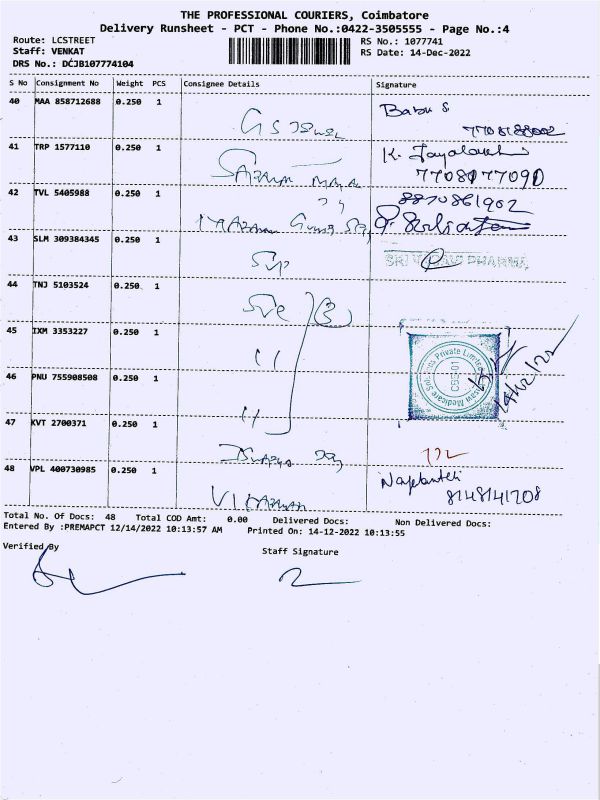 THE PROFESSIONAL COURIERS, Coimbatore
Delivery Runsheet - PCT - Phone No.:0422-3505555 - Page No.:4
Route: LCSTREET
RS No.: 1077741
Staff: VENKAT
RS Date: 14-Dec-2022
DRS No.: DCJB107774104
S No Consignment No Weight PCS Consignee Details Signature
40 MAA 858712688 0.250 1
Babu S
7708188002
41 TRP 1577110 0.250 1
K.
7708077090
42 TVL 5405988 0.250 1
8870861902
43 SLM 309384345 0.250 1
SVP
PHARMA
44 TNJ 5103524 0.250 1
Sve (3)
45 IXM 3353227 0.250 1
Private Limited
CBE-01
14/12/22
46 PNU 755908508 0.250 1
47 KVT 2700371 0.250 1
48 VPL 400730985 0.250 1
8148141708
Total No. Of Docs: 48 Total COD Amt: 0.00 Delivered Docs: Non Delivered Docs:
Entered By :PREMAPCT 12/14/2022 10:13:57 AM Printed On: 14-12-2022 10:13:55
Verified By
Staff Signature